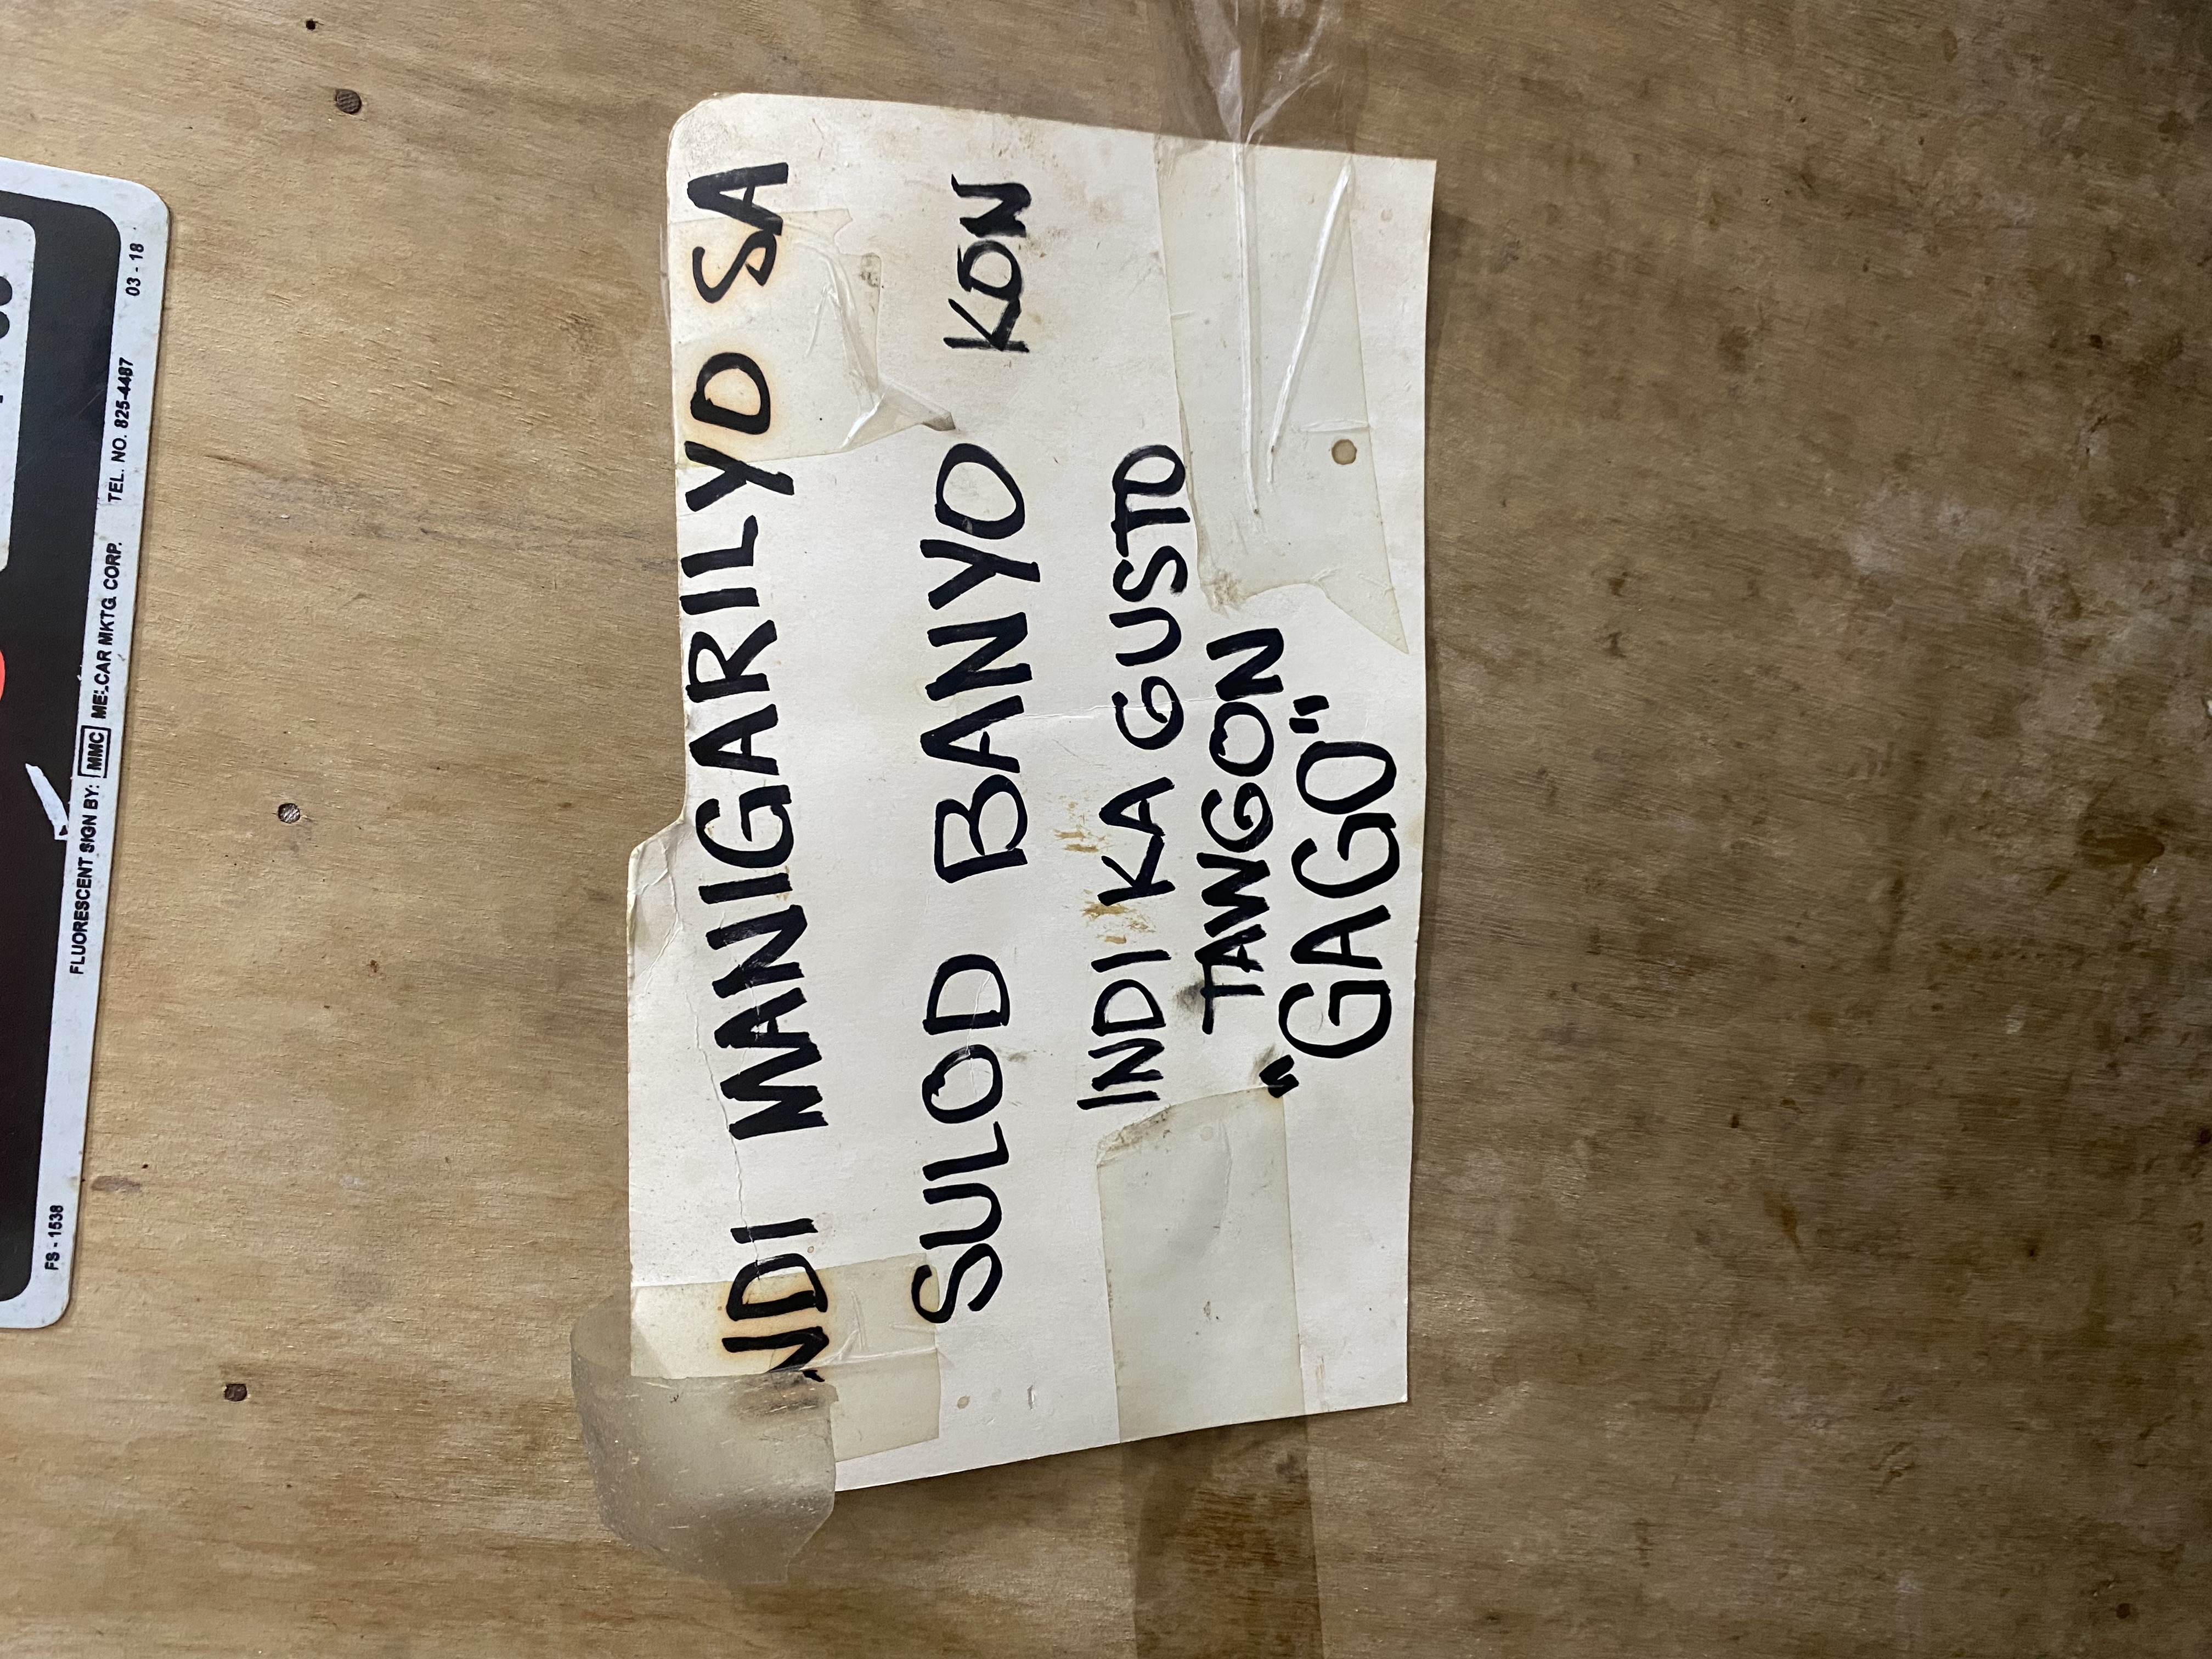 FS - 1538
FLUORESCENT SIGN BY: MMC MELCAR MKTG. CORP. TEL. NO. 825-4487 03 - 18
NDI MANIGARILYO SA
SULOD BANYO KON
INDI KA GUSTO
TAWGON
"GAGO"